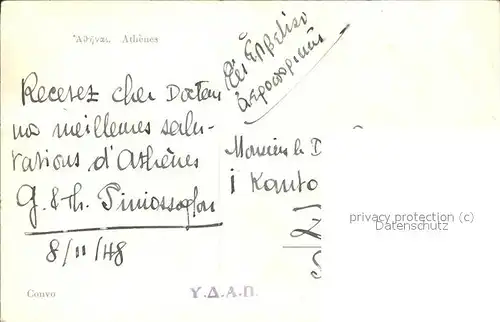 Ἀθῆναι. Athènes
Recevez cher Docteur
nos meilleures salu-
tations d'Athènes
G. & th.
8/11/48
ἀεροπορικῶς
Monsieur le D
Kanto
privacy protection (c)
Datenschutz
Convo
Υ.Δ.Α.Π.